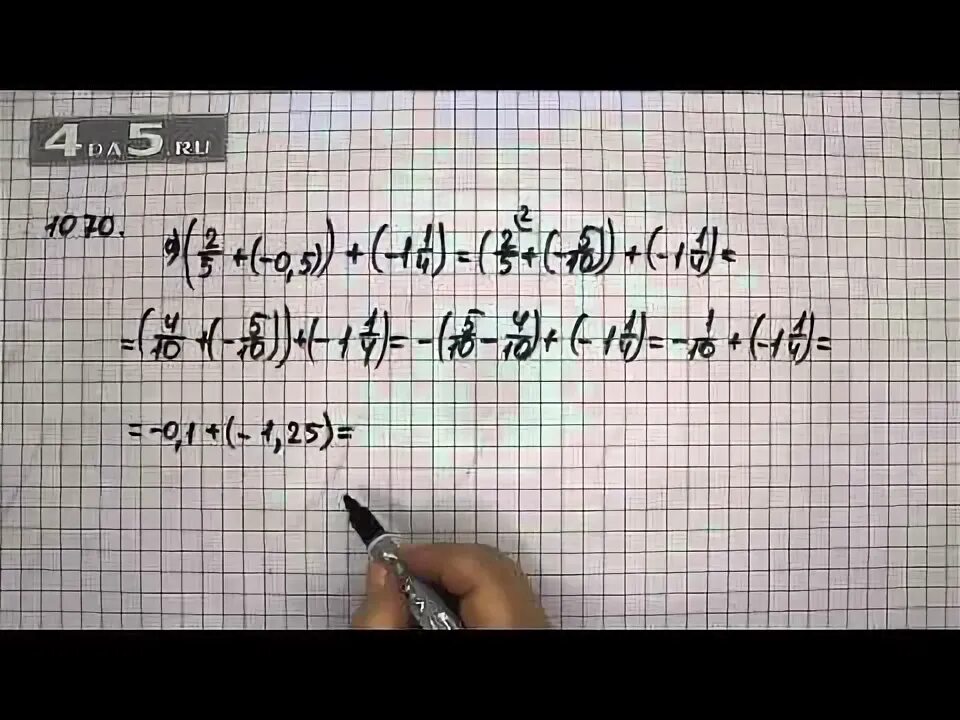 4 DA 5 .RU
1070. a) (2/5 + (-0,5)) + (-1 1/4) = (2/5 ² + (-5/10)) + (-1 1/4) =
= (4/10 + (-5/10)) + (-1 1/4) = -(5/10 - 4/10) + (-1 1/4) = -1/10 + (-1 1/4) =
= -0,1 + (-1,25) =